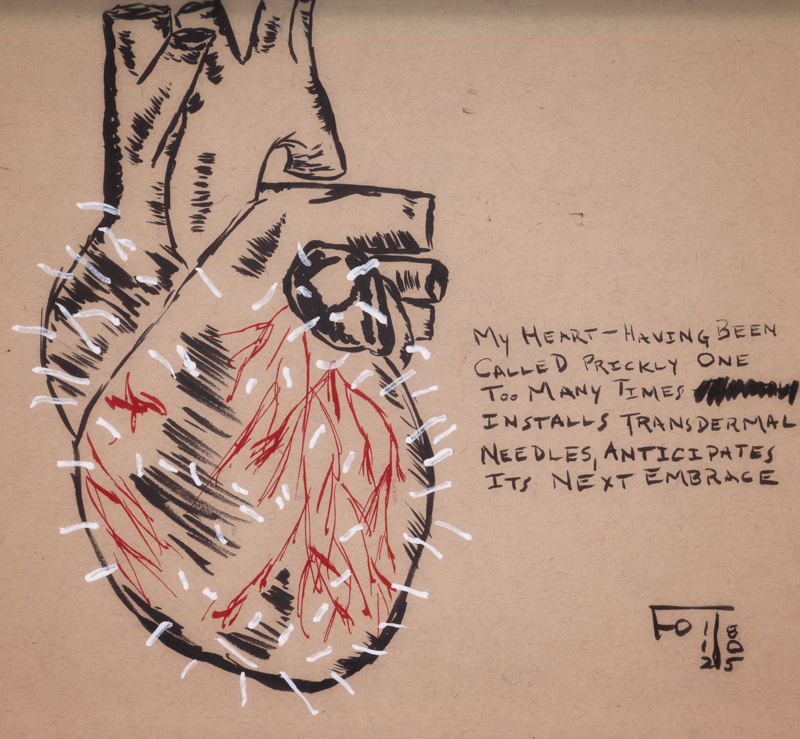 My HEART–HAVING BEEN
CALLED PRICKLY ONE
Too MANY TIMES
INSTALLS TRANSDERMAL
NEEDLES, ANTICIPATES
ITS NEXT EMBRACE